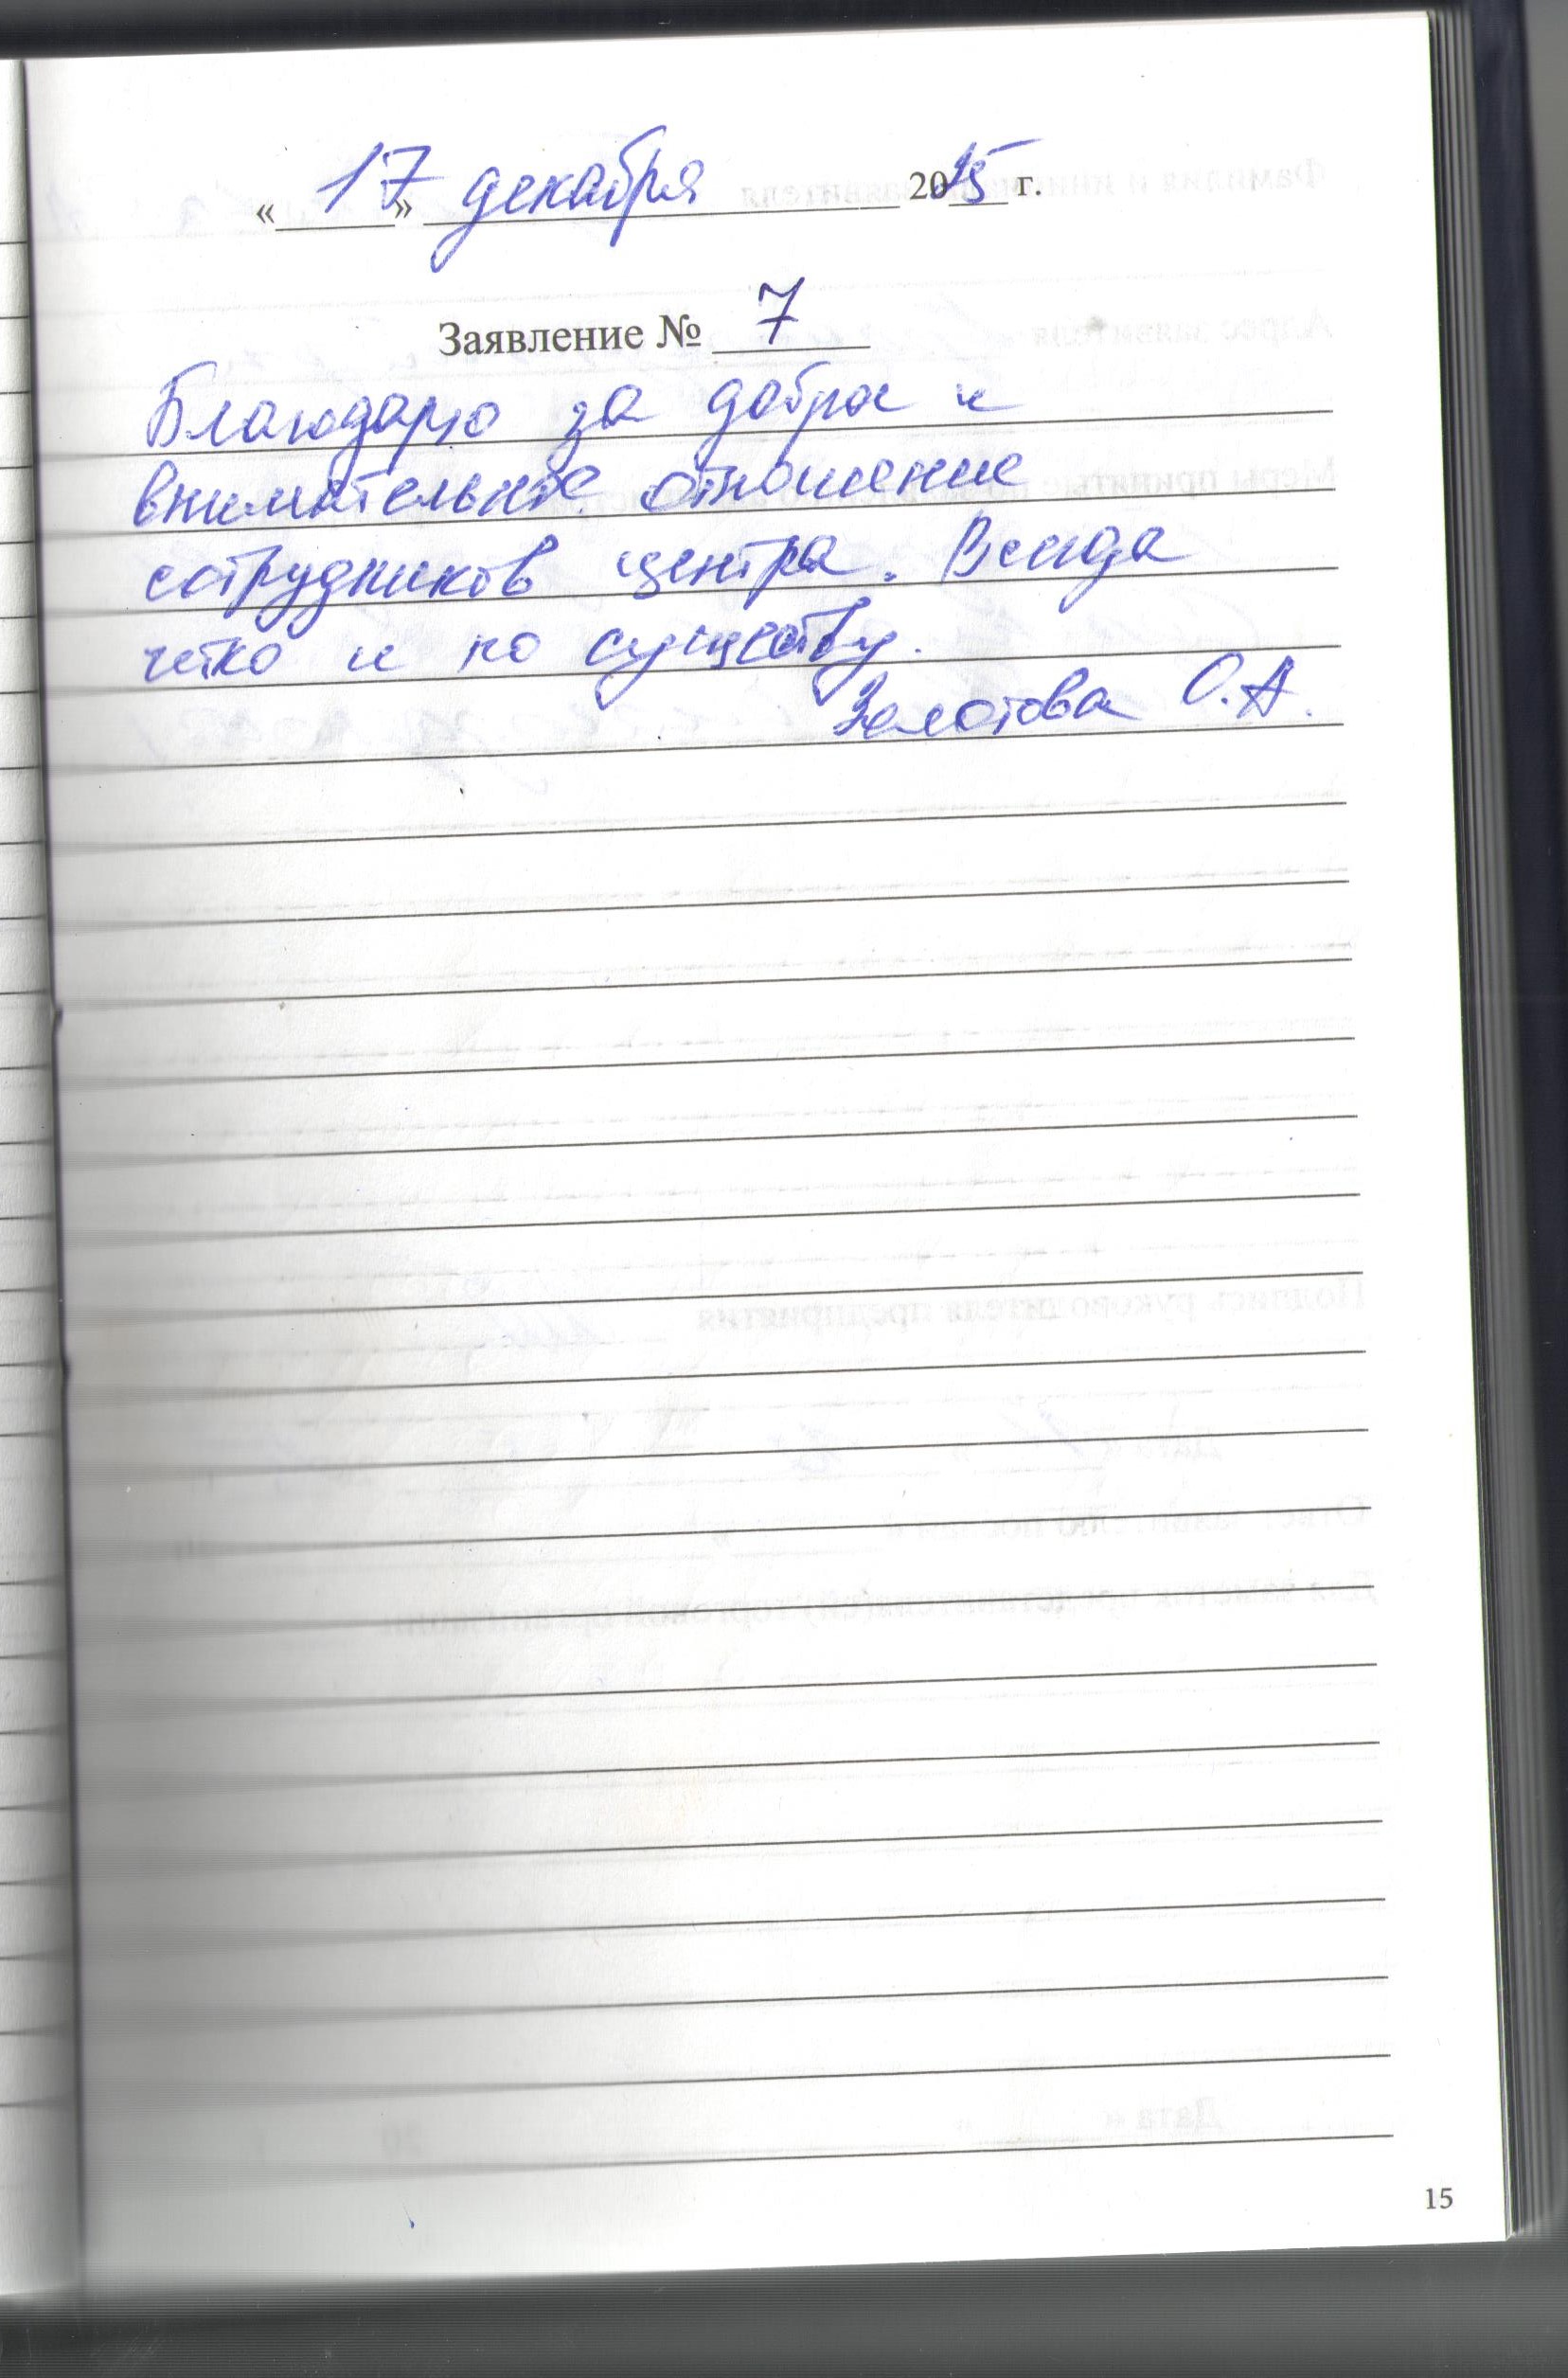 «17» декабря 2015 г.
Заявление № 7
Благодарю за доброе и
внимательное отношение
сотрудников центра. Всегда
четко и по существу.
Золотова О.А.
15